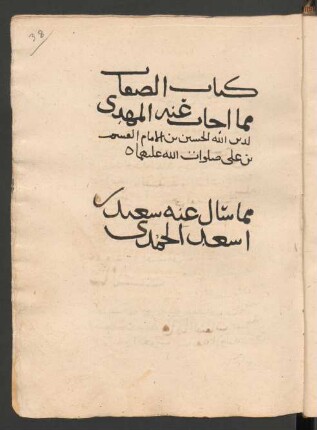 38
كتاب الصفات
مما اجاب عنه المهدي
لدين الله الحسين بن الامام القسم
بن علي صلوات الله عليهما ٥
مما سال عنه سعيد بن
اسعد الحمدي